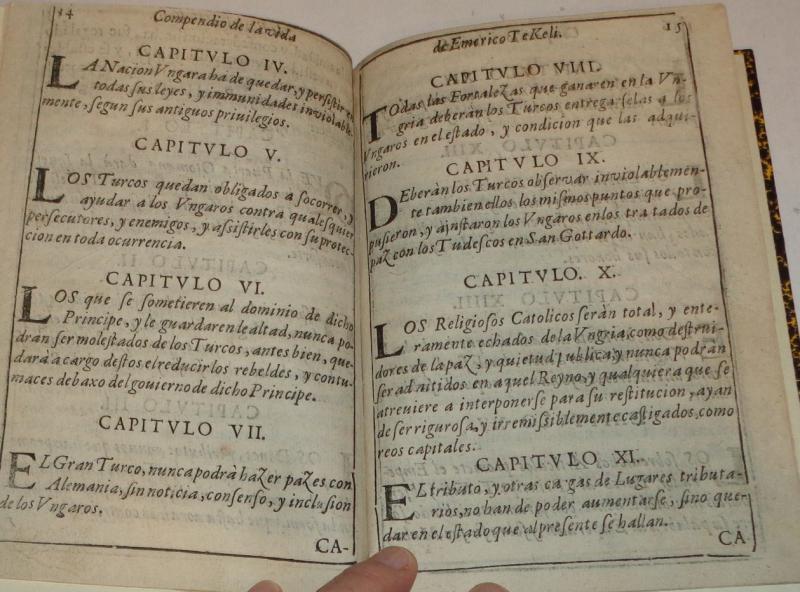 14 Compendio de la vida
CAPITVLO IV.
LA Nacion Vngara ha de quedar, y persistir en
todas sus leyes, y immunidades inviolable-
mente, segun sus antiguos priuilegios.
CAPITVLO V.
LOS Turcos quedan obligados a socorrer, y
ayudar a los Vngaros contra qualesquier
persecutores, y enemigos, y assistirles con su protec-
cion en toda ocurrencia.
CAPITVLO VI.
LOS que se sometieren al dominio de dicho
Principe, y le guardaren lealtad, nunca po-
dran ser molestados de los Turcos, antes bien, que-
darà a cargo destos el reducir los rebeldes, y contu-
maces debaxo del gouierno de dicho Principe.
CAPITVLO VII.
EL Gran Turco, nunca podrà hazer pazes con
Alemania, sin noticia, consenso, y inclusion
de los Vngaros.
CA-
de Emerico TeKeli. 15
CAPITVLO VIII.
TOdas las Fortalezas que ganaren en la Vn-
gria deberàn los Turcos entregarselas a los
Vngaros en el estado, y condicion que las adqui-
rieron.
CAPITVLO IX.
DEberàn los Turcos observar inviolablemen-
te tambien ellos los mismos puntos que pro-
pusieron, y ajustaron los Vngaros en los tratados de
paz con los Tudescos en San Gottardo.
CAPITVLO. X.
LOS Religiosos Catolicos seràn total, y ente-
ramente echados de la Vngria, como destrui-
dores de la paz, y quietud publica, y nunca podràn
ser admitidos en aquel Reyno, y qualquiera que se
atreuiere a interponerse para su restitucion, ayan
de ser rigurosa, y irremissiblemente castigados, como
reos capitales.
CAPITVLO XI.
EL tributo, y otras cargas de Lugares tributa-
rios, no han de poder aumentarse, sino que-
dar en el estado que al presente se hallan.
CA